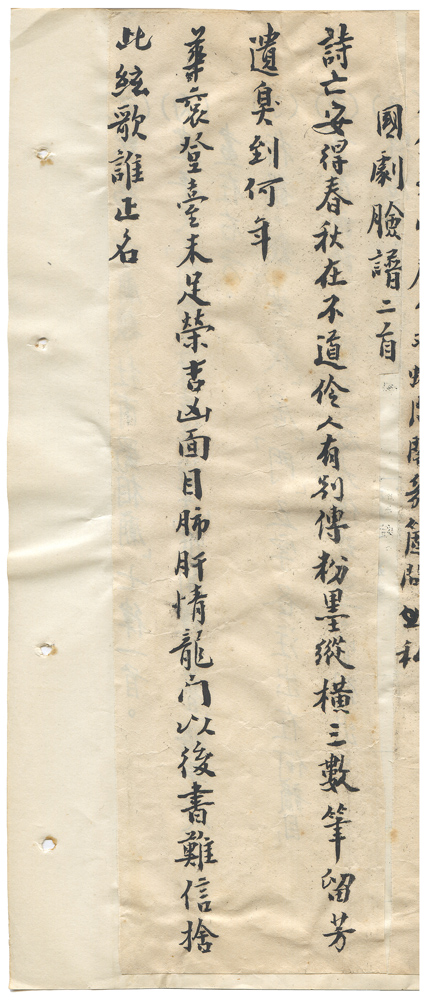 國劇臉譜二首
詩亡安得春秋在不道伶人有別傳粉墨縱橫三數筆留芳
遺臭到何年
華袞登臺未足榮吉凶面目肺肝情龍门以後書難信捨
此絃歌誰正名